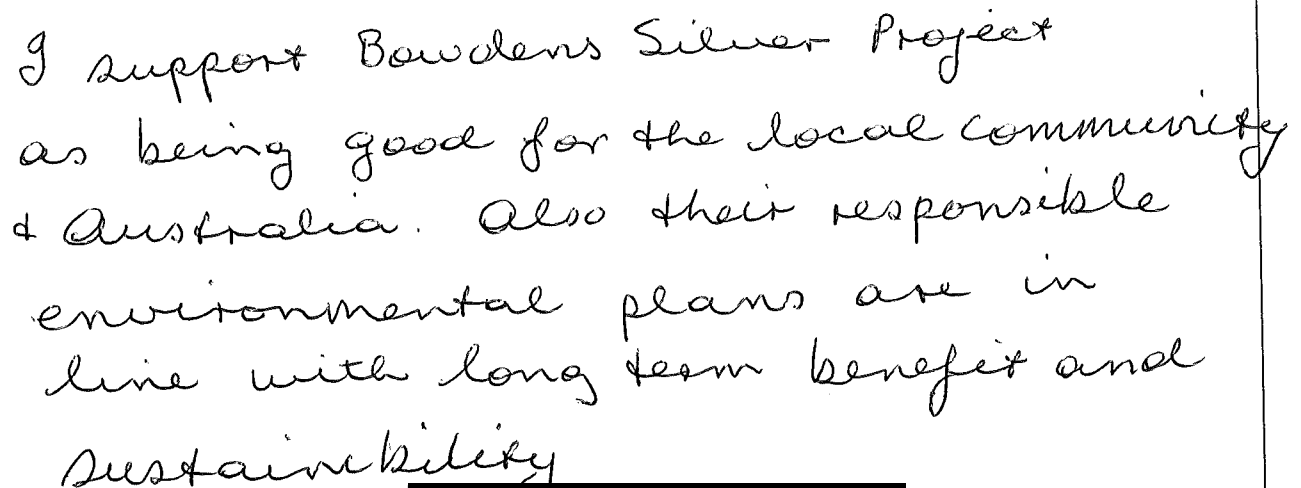 I support Bowdens Silver Project
as being good for the local community
& Australia. Also their responsible
environmental plans are in
line with long term benefit and
sustainibility